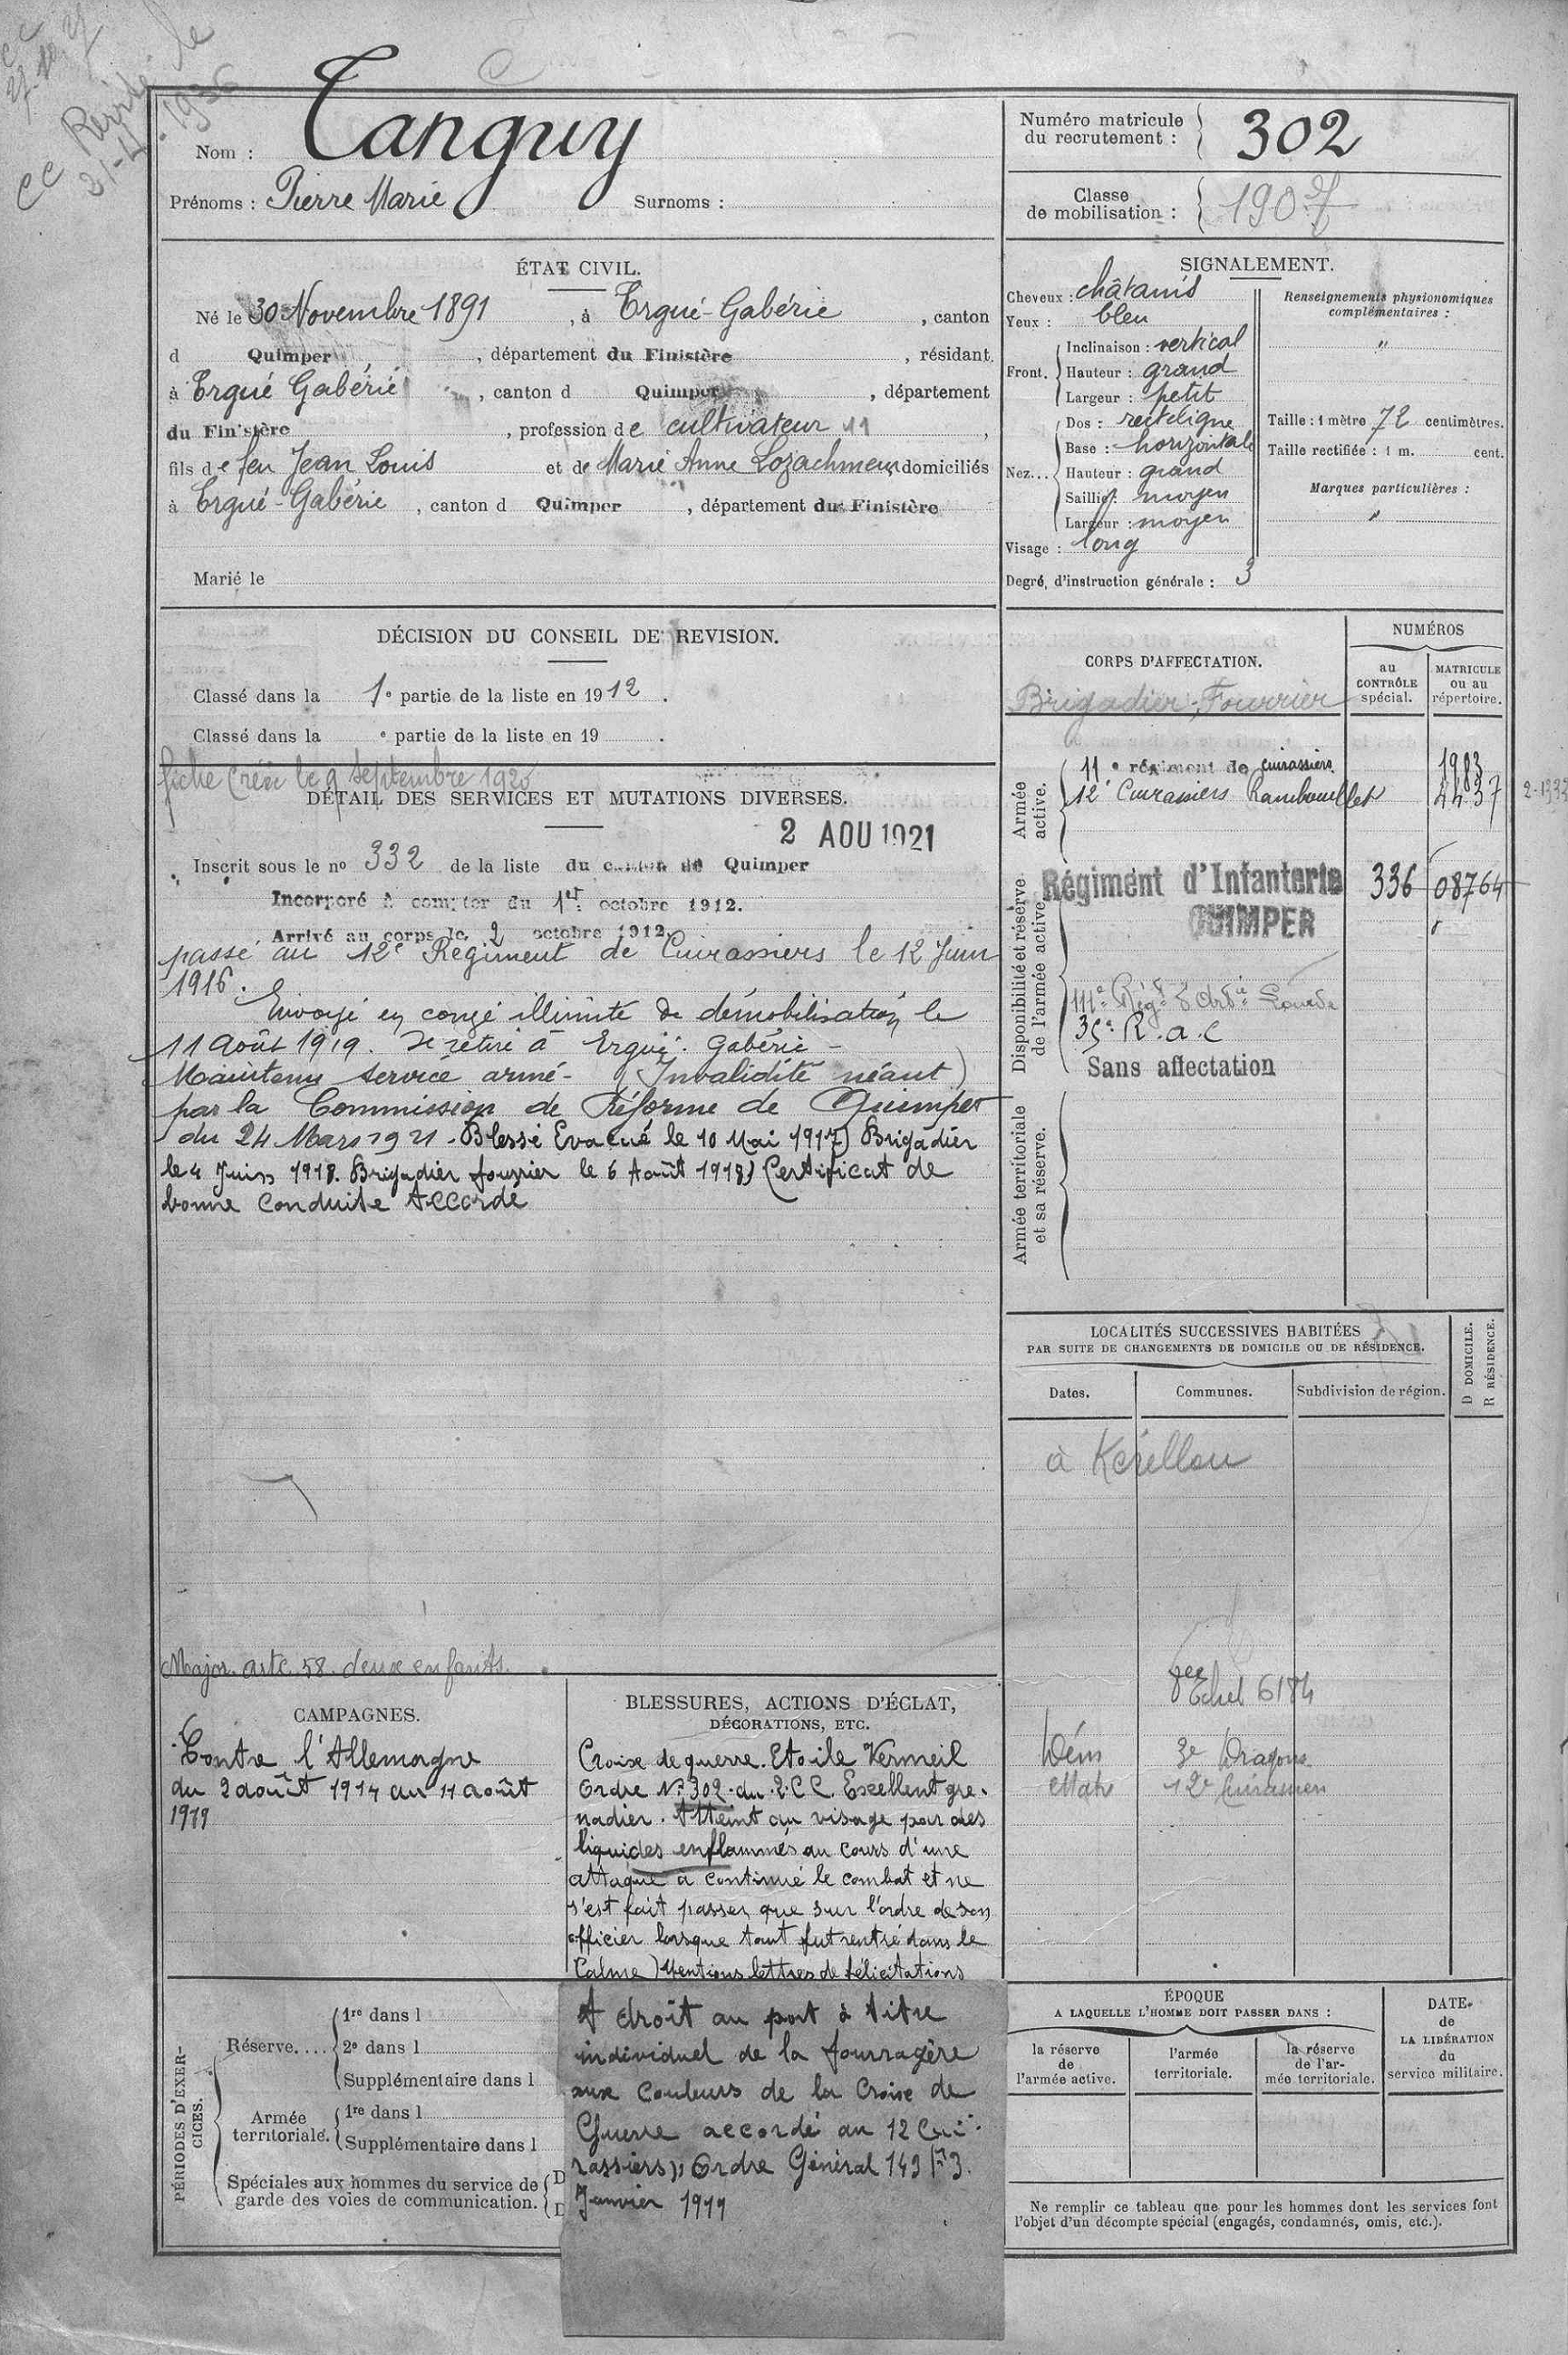 cc
27.10.27
cc Revisé le
21-4-1936
Nom : Tanguy
Prénoms : Pierre Marie Surnoms :
Numéro matricule
du recrutement : 302
Classe
de mobilisation : 1907
ÉTAT CIVIL.
Né le 30 Novembre 1891, à Ergué-Gabérie, canton
d Quimper, département du Finistère, résidant
à Ergué Gabérie, canton d Quimper, département
du Finistère, profession de cultivateur 11,
fils de feu Jean Louis et de Marie Anne Lozachmeur, domiciliés
à Ergué-Gabérie, canton d Quimper, département du Finistère
Marié le
SIGNALEMENT.
Cheveux : châtains
Yeux : bleu
Front. Inclinaison : vertical
Hauteur : grand
Largeur : petit
Nez... Dos : rectiligne
Base : horizontale
Hauteur : grand
Saillie : moyen
Largeur : moyen
Visage : long
Renseignements physionomiques
complémentaires :
"
Taille : 1 mètre 72 centimètres.
Taille rectifiée : 1 m. cent.
Marques particulières :
"
Degré d'instruction générale : 3
DÉCISION DU CONSEIL DE REVISION.
Classé dans la 1e partie de la liste en 1912.
Classé dans la e partie de la liste en 19 .
fiche créée le 9 septembre 1920
DÉTAIL DES SERVICES ET MUTATIONS DIVERSES.
2 AOU 1921
Inscrit sous le no 332 de la liste du canton de Quimper
Incorporé à compter du 1er octobre 1912.
Arrivé au corps le 2 octobre 1912.
passé au 12e Régiment de Cuirassiers le 12 Juin
1916.
Envoyé en congé illimité de démobilisation le
11 Août 1919. Se retire à Ergué-Gabéric -
Maintenu service armé - (Invalidité néant)
par la Commission de Réforme de Quimper
du 24 Mars 1921 - Blessé Evacué le 10 Mai 1917) Brigadier
le 4 Juin 1918. Brigadier fourrier le 6 Août 1918) Certificat de
bonne conduite Accordé
Major. artc. 58. deux enfants.
CORPS D'AFFECTATION.
NUMÉROS
au
CONTRÔLE
spécial.
MATRICULE
ou au
répertoire.
Brigadier-Fourrier
Armée
active.
11e régiment de cuirassiers 1983
12e Cuirassiers Rambouillet 4437
Disponibilité et réserve
de l'armée active.
Régiment d'Infanterie 336 08764
QUIMPER
111e Régt d'Artie Lourde
35e R.a.c
Sans affectation
Armée territoriale
et sa réserve.
LOCALITÉS SUCCESSIVES HABITÉES
PAR SUITE DE CHANGEMENTS DE DOMICILE OU DE RÉSIDENCE.
Dates. Communes. Subdivision de région.
D DOMICILE.
R RÉSIDENCE.
à Kerellou
Echel 6184
Dém 3e Dragons
12e Cuirassiers
CAMPAGNES.
Contre l'Allemagne
du 2 août 1914 au 11 août
1919
BLESSURES, ACTIONS D'ÉCLAT,
DÉCORATIONS, ETC.
Croix de guerre. Etoile Vermeil
Ordre No 302 du 2.C C. Excellent gre-
nadier. Atteint au visage par des
liquides enflammés au cours d'une
attaque a continué le combat et ne
s'est fait passer que sur l'ordre de son
officier lorsque tout fut rentré dans le
Calme) Mentions lettres de félicitations
A droit au port à titre
individuel de la fourragère
aux couleurs de la Croix de
Guerre accordé au 12 Cui-
rassiers), Ordre Général 143 F 3
Janvier 1919
PÉRIODES D'EXER-
CICES.
Réserve.... 1re dans l
2e dans l
Supplémentaire dans l
Armée
territoriale. 1re dans l
Supplémentaire dans l
Spéciales aux hommes du service de
garde des voies de communication.
D
D
ÉPOQUE
A LAQUELLE L'HOMME DOIT PASSER DANS :
la réserve
de
l'armée active.
l'armée
territoriale.
la réserve
de l'ar-
mée territoriale.
DATE
de
LA LIBÉRATION
du
service militaire.
Ne remplir ce tableau que pour les hommes dont les services font
l'objet d'un décompte spécial (engagés, condamnés, omis, etc.).